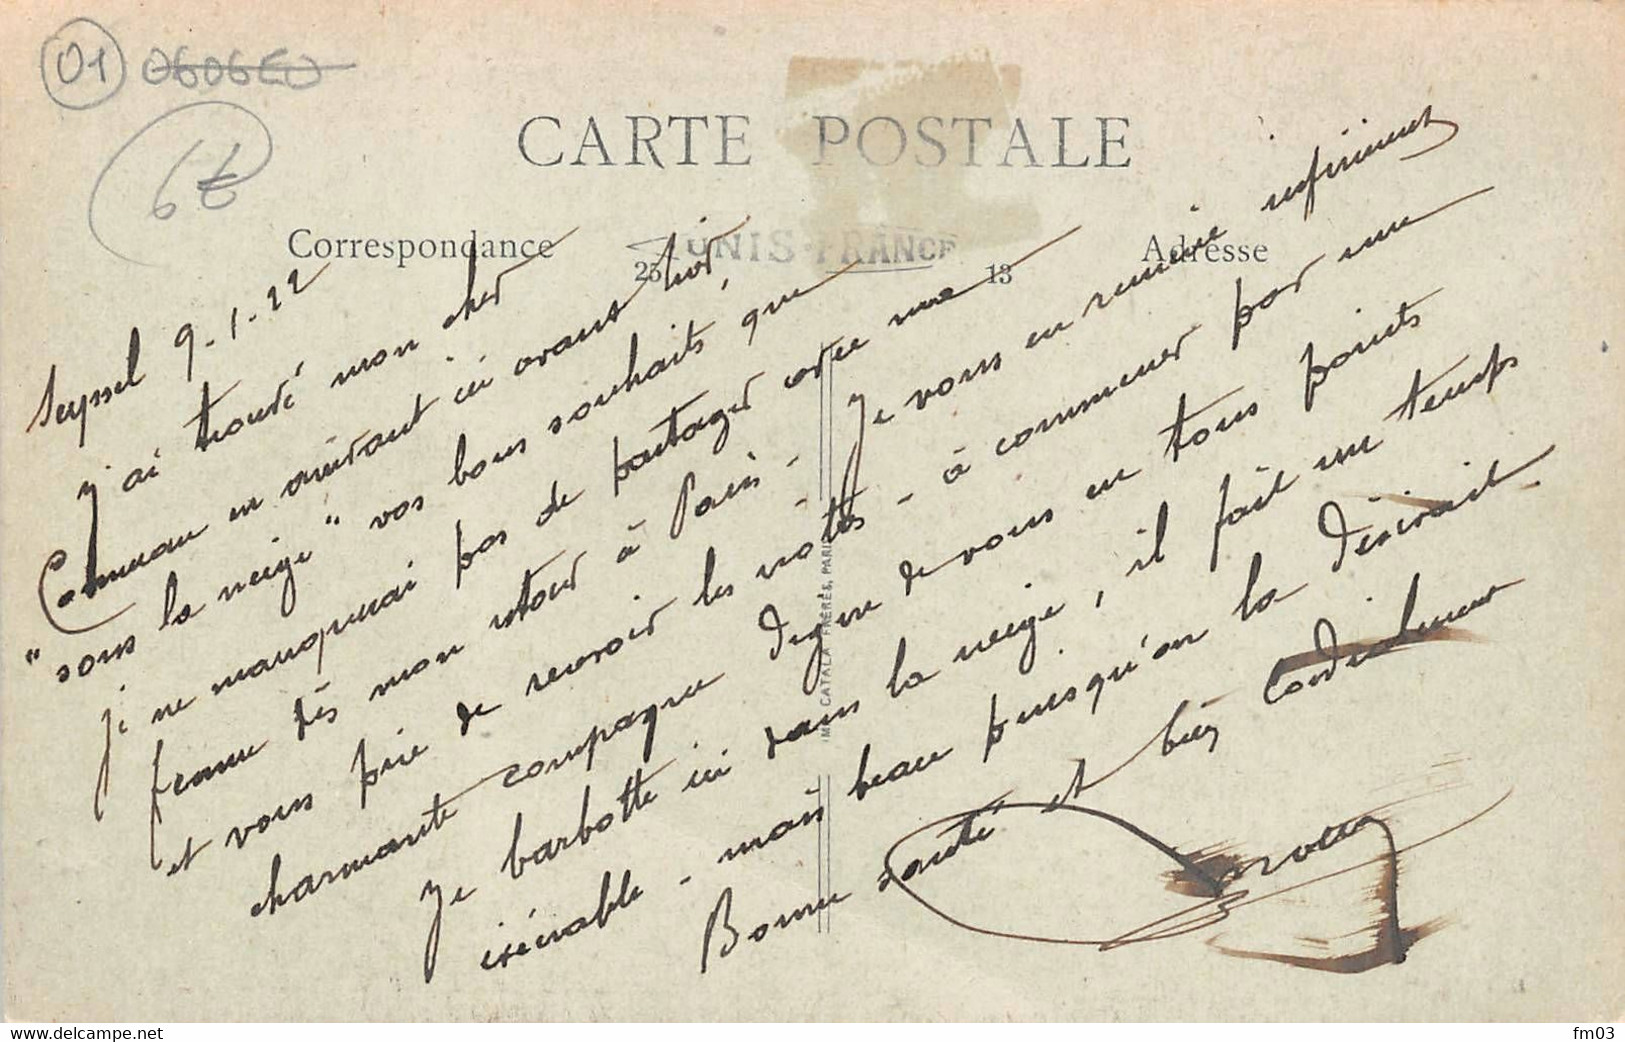 01 0606EU
6€
CARTE POSTALE
Correspondance
TUNIS-FRANCE
25 13
Adresse
IMP. CATALA FRÈRES, PARIS
Seyssel 9-1-22
J'ai trouvé mon cher
en arrivant ici avant hier,
"sous la neige" vos bons souhaits que
je ne manquerai pas de partager avec ma
femme dès mon retour à Paris - Je vous en remercie infiniment
et vous prie de recevoir les notres - à commencer par une
charmante compagne digne de vous en tous points
Je barbotte ici dans la neige, il fait un temps
exécrable - mais beau puisqu'on la désirait.
Bonne santé et bien cordialement
delcampe.net
fm03